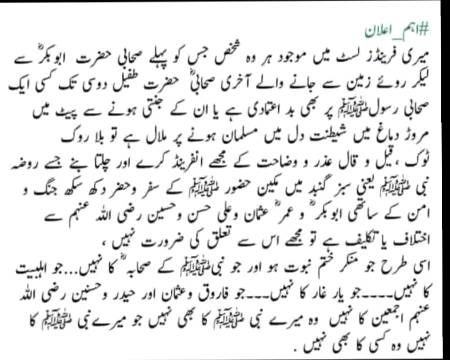 #اہم_اعلان
میری فرینڈز لسٹ میں موجود ہر وہ شخص جس کو پہلے صحابی حضرت ابوبکرؓ سے
لیکر روئے زمین سے جانے والے آخری صحابیؓ حضرت طفیل دوسی تک کسی ایک
صحابی رسولﷺ پر بھی بد اعتمادی ہے یا ان کے جنتی ہونے سے پیٹ میں
مروڑ دماغ میں شیطنت دل میں مسلمان ہونے پر ملال ہے تو بلا روک
ٹوک ، قیل و قال عذر و وضاحت کے مجھے انفرینڈ کرے اور چلتا بنے جسے روضہ
نبی ﷺ یعنی سبز گنبد میں مکین حضور ﷺ کے سفر وحضر دکھ سکھ جنگ و
امن کے ساتھی ابوبکرؓ و عمرؓ عثمان وعلی حسن وحسین رضی اللہ عنہم سے
اختلاف یا تکلیف ہے تو مجھے اس سے تعلق کی ضرورت نہیں ،
اسی طرح جو منکر ختم نبوت ہو اور جو نبیﷺ کے صحابہؓ کا نہیں...جو اہلبیت
کا نہیں....جو یار غار کا نہیں...جو فاروق وعثمان اور حیدر وحسنین رضی اللہ
عنہم اجمعین کا نہیں وہ میرے نبی ﷺ کا بھی نہیں جو میرے نبی ﷺ کا
نہیں وہ کسی کا بھی نہیں .